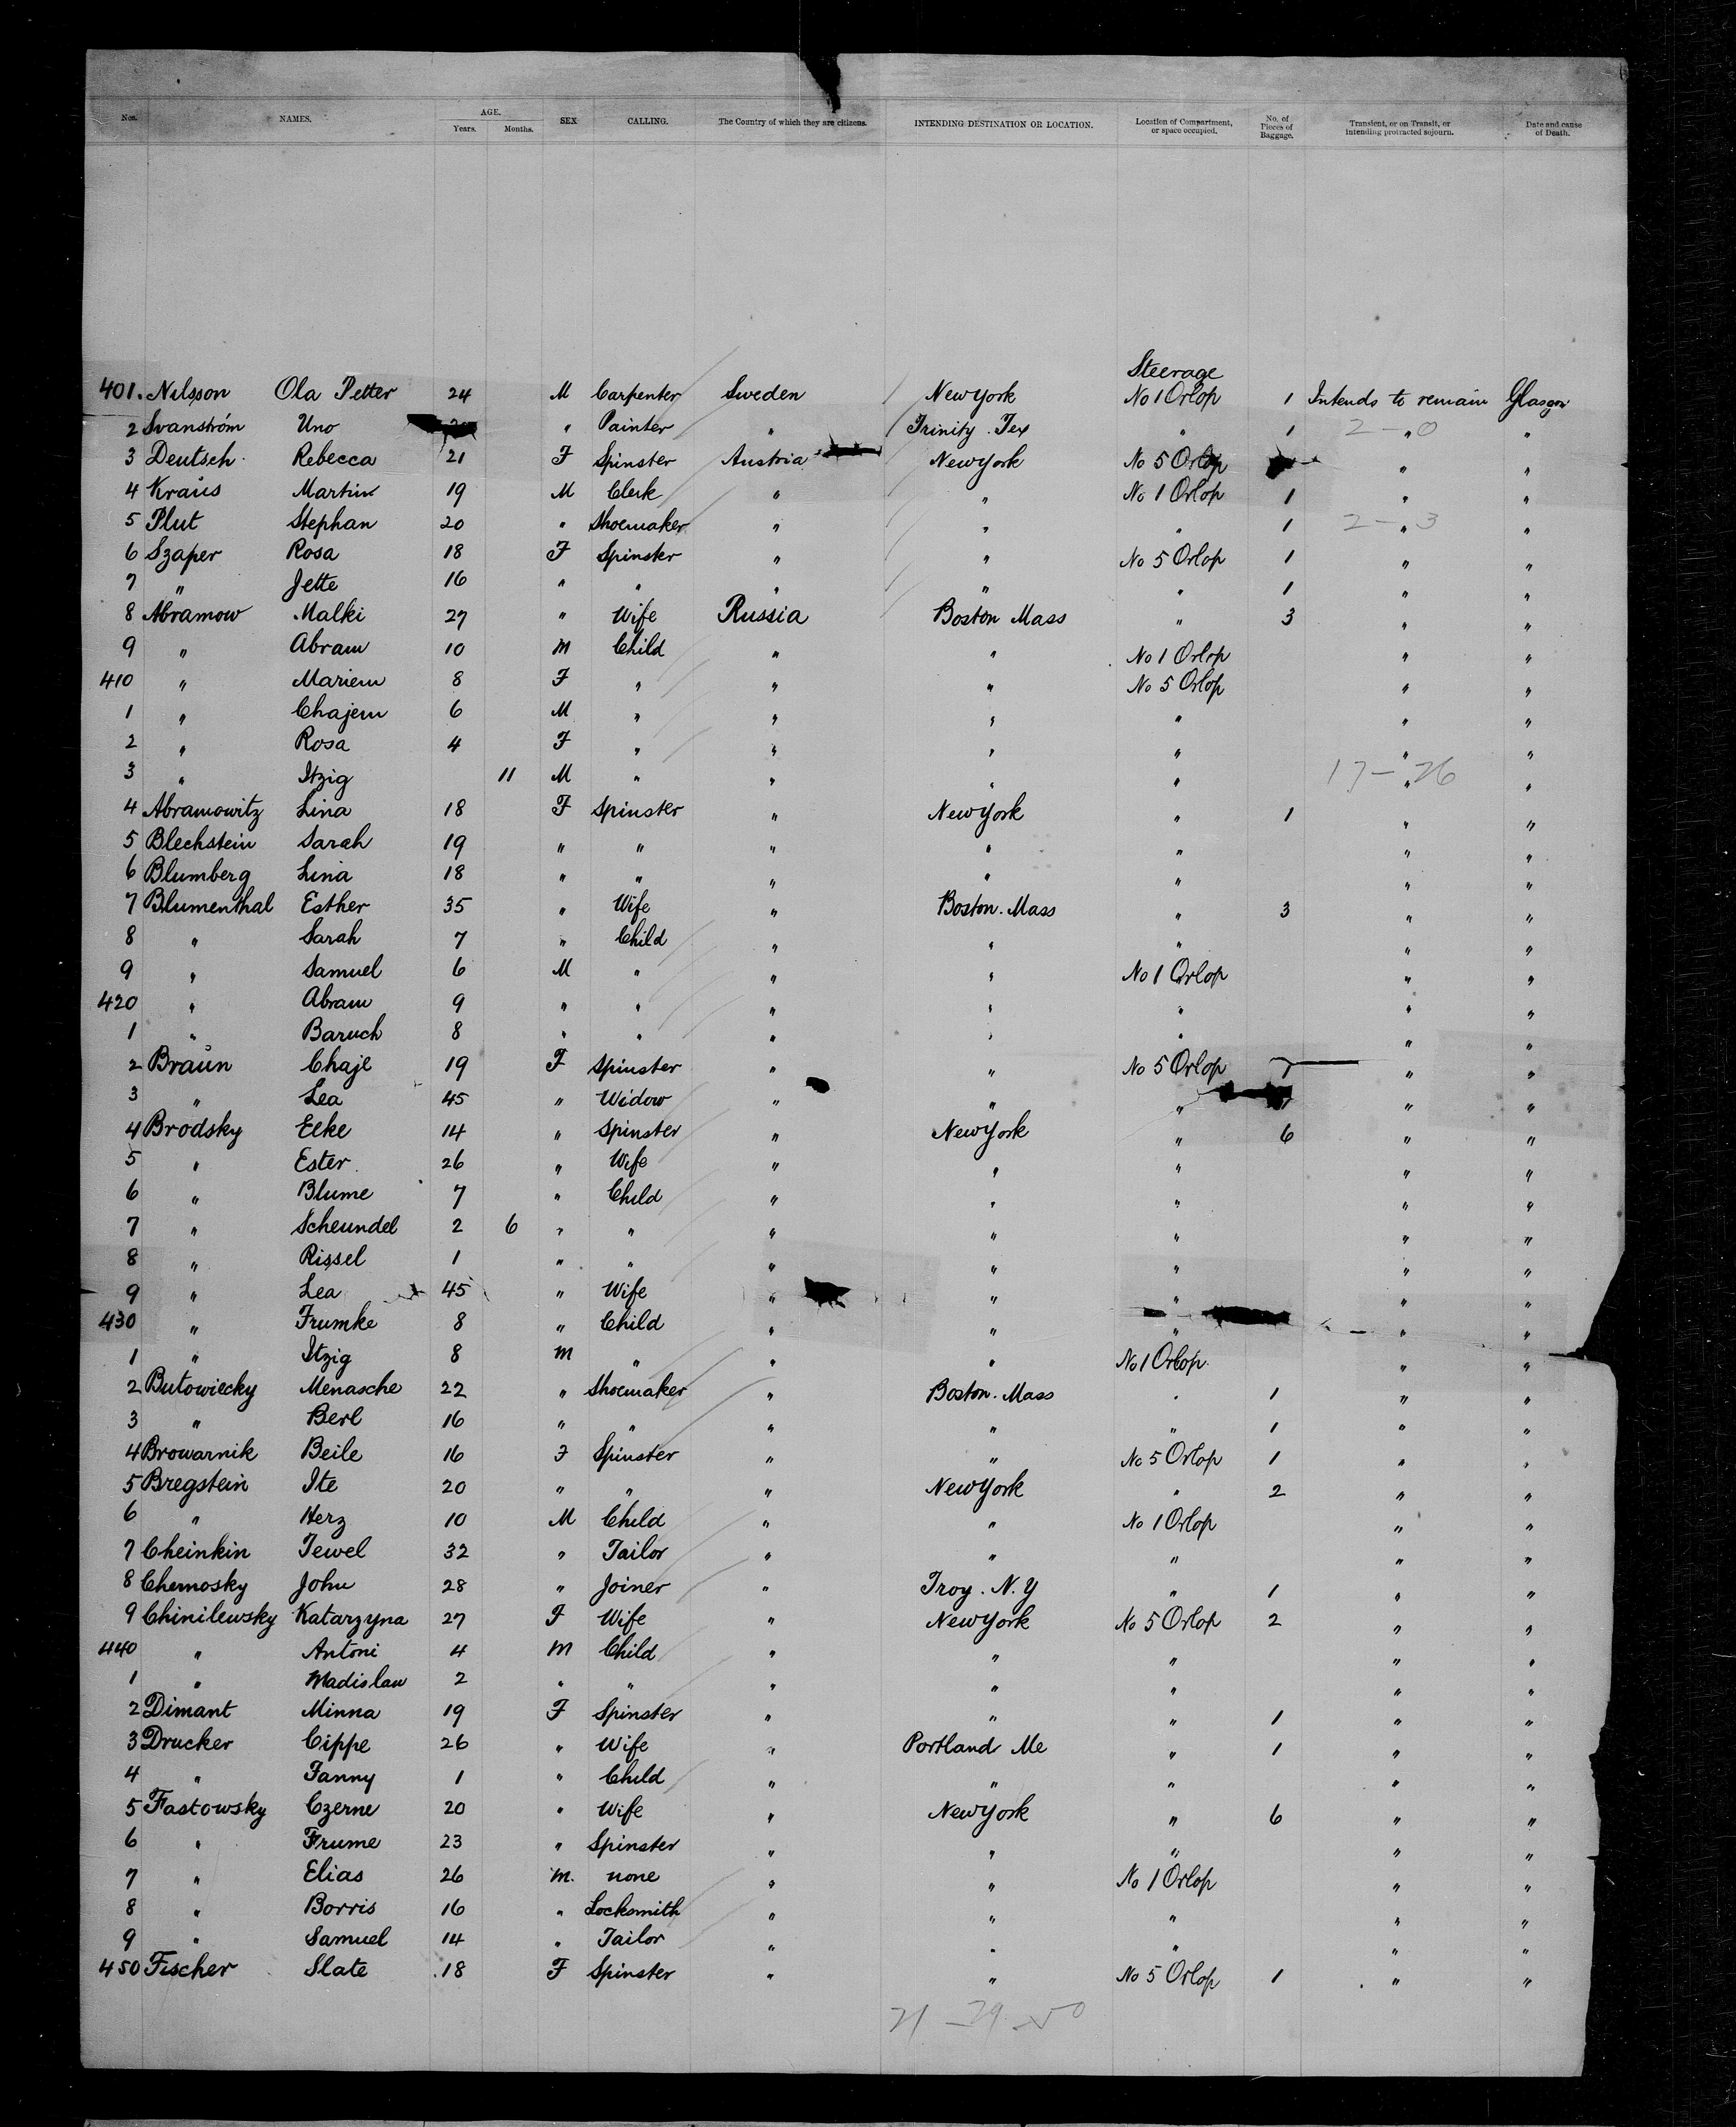 Nos. NAMES. AGE. Years. Months. SEX CALLING. The Country of which they are citizens. INTENDING DESTINATION OR LOCATION. Location of Compartment, or space occupied. No. of Pieces of Baggage. Transient, or on Transit, or intending protracted sojourn. Date and cause of Death.
Steerage
401. Nilsson Ola Petter 24 M Carpenter Sweden New York No 1 Orlop 1 Intends to remain Glasgow
2 Svanström Uno " Painter " Trinity. Tex " 1 " 2 – 0 "
3 Deutsch Rebecca 21 F Spinster Austria New York No 5 Orlop " "
4 Kraus Martin 19 M Clerk " " No 1 Orlop 1 " "
5 Plut Stephan 20 " Shoemaker " " " 1 " 2 – 3 "
6 Szaper Rosa 18 F Spinster " " No 5 Orlop 1 " "
7 " Jette 16 " " " " " 1 " "
8 Abramow Malki 27 " Wife Russia Boston Mass " 3 " "
9 " Abram 10 M Child " " No 1 Orlop " "
410 " Mariem 8 F " " " No 5 Orlop " "
1 " Chajem 6 M " " " " " "
2 " Rosa 4 F " " " " " "
3 " Itzig 11 M " " " " " 17 – 26 "
4 Abramowitz Lina 18 F Spinster " New York " 1 " "
5 Blechstein Sarah 19 " " " " " " "
6 Blumberg Lina 18 " " " " " " "
7 Blumenthal Esther 35 " Wife " Boston. Mass " 3 " "
8 " Sarah 7 " Child " " " " "
9 " Samuel 6 M " " " No 1 Orlop " "
420 " Abram 9 " " " " " " "
1 " Baruch 8 " " " " " " "
2 Braun Chaje 19 F Spinster " " No 5 Orlop 1 " "
3 " Lea 45 " Widow " " " " "
4 Brodsky Elke 14 " Spinster " New York " 6 " "
5 " Ester 26 " Wife " " " " "
6 " Blume 7 " Child " " " " "
7 " Scheundel 2 6 " " " " " " "
8 " Rissel 1 " " " " " " "
9 " Lea 45 " Wife " " " " "
430 " Frumke 8 " Child " " " " "
1 " Itzig 8 M " " " No 1 Orlop " "
2 Butowiecky Menasche 22 " Shoemaker " Boston. Mass " 1 " "
3 " Berl 16 " " " " " 1 " "
4 Browarnik Beile 16 F Spinster " " No 5 Orlop 1 " "
5 Bregstein Ite 20 " " " New York " 2 " "
6 " Herz 10 M Child " " No 1 Orlop " "
7 Cheinkin Tewel 32 " Tailor " " " " "
8 Chernosky John 28 " Joiner " Troy. N.Y " 1 " "
9 Chinilewsky Katarzyna 27 F Wife " New York No 5 Orlop 2 " "
440 " Antoni 4 M Child " " " " "
1 " Wadislaw 2 " " " " " " "
2 Dimant Minna 19 F Spinster " " " 1 " "
3 Drucker Cippe 26 " Wife " Portland Me " 1 " "
4 " Fanny 1 " Child " " " " "
5 Fastowsky Czerne 20 " Wife " New York " 6 " "
6 " Frume 23 " Spinster " " " " "
7 " Elias 26 M. none " " No 1 Orlop " "
8 " Borris 16 " Locksmith " " " " "
9 " Samuel 14 " Tailor " " " " "
450 Fischer Slate 18 F Spinster " " No 5 Orlop 1 " "
21 – 29 – 50